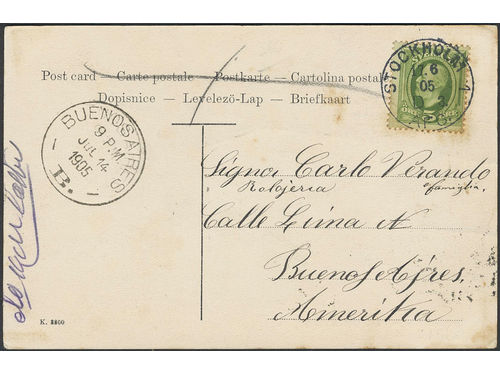 Post card — Carte postale — Postkarte — Cartolina postale
Dopisnice — Levelező-Lap — Briefkaart
STOCKHOLM 1
17 6
05
BUENOS AIRES
9 P.M.
JUL 14
1905
B.
Signor Carlo Verando
Rolojeria e famiglia
Calle Lima N
Buenos Ajres,
Amerika
K. 2800